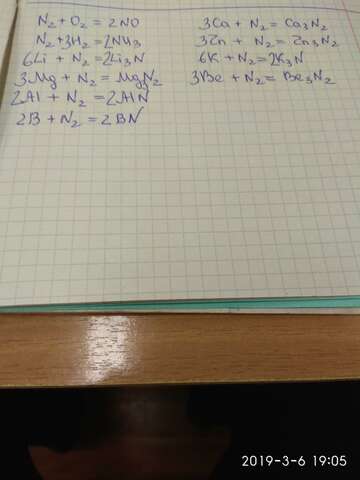 N₂ + O₂ = 2NO
N₂ + 3H₂ = 2NH₃
6Li + N₂ = 2Li₃N
3Mg + N₂ = MgN₂
2Al + N₂ = 2AlN
2B + N₂ = 2BN
3Ca + N₂ = Ca₃N₂
3Zn + N₂ = Zn₃N₂
6K + N₂ = 2K₃N
3Be + N₂ = Be₃N₂
2019-3-6 19:05